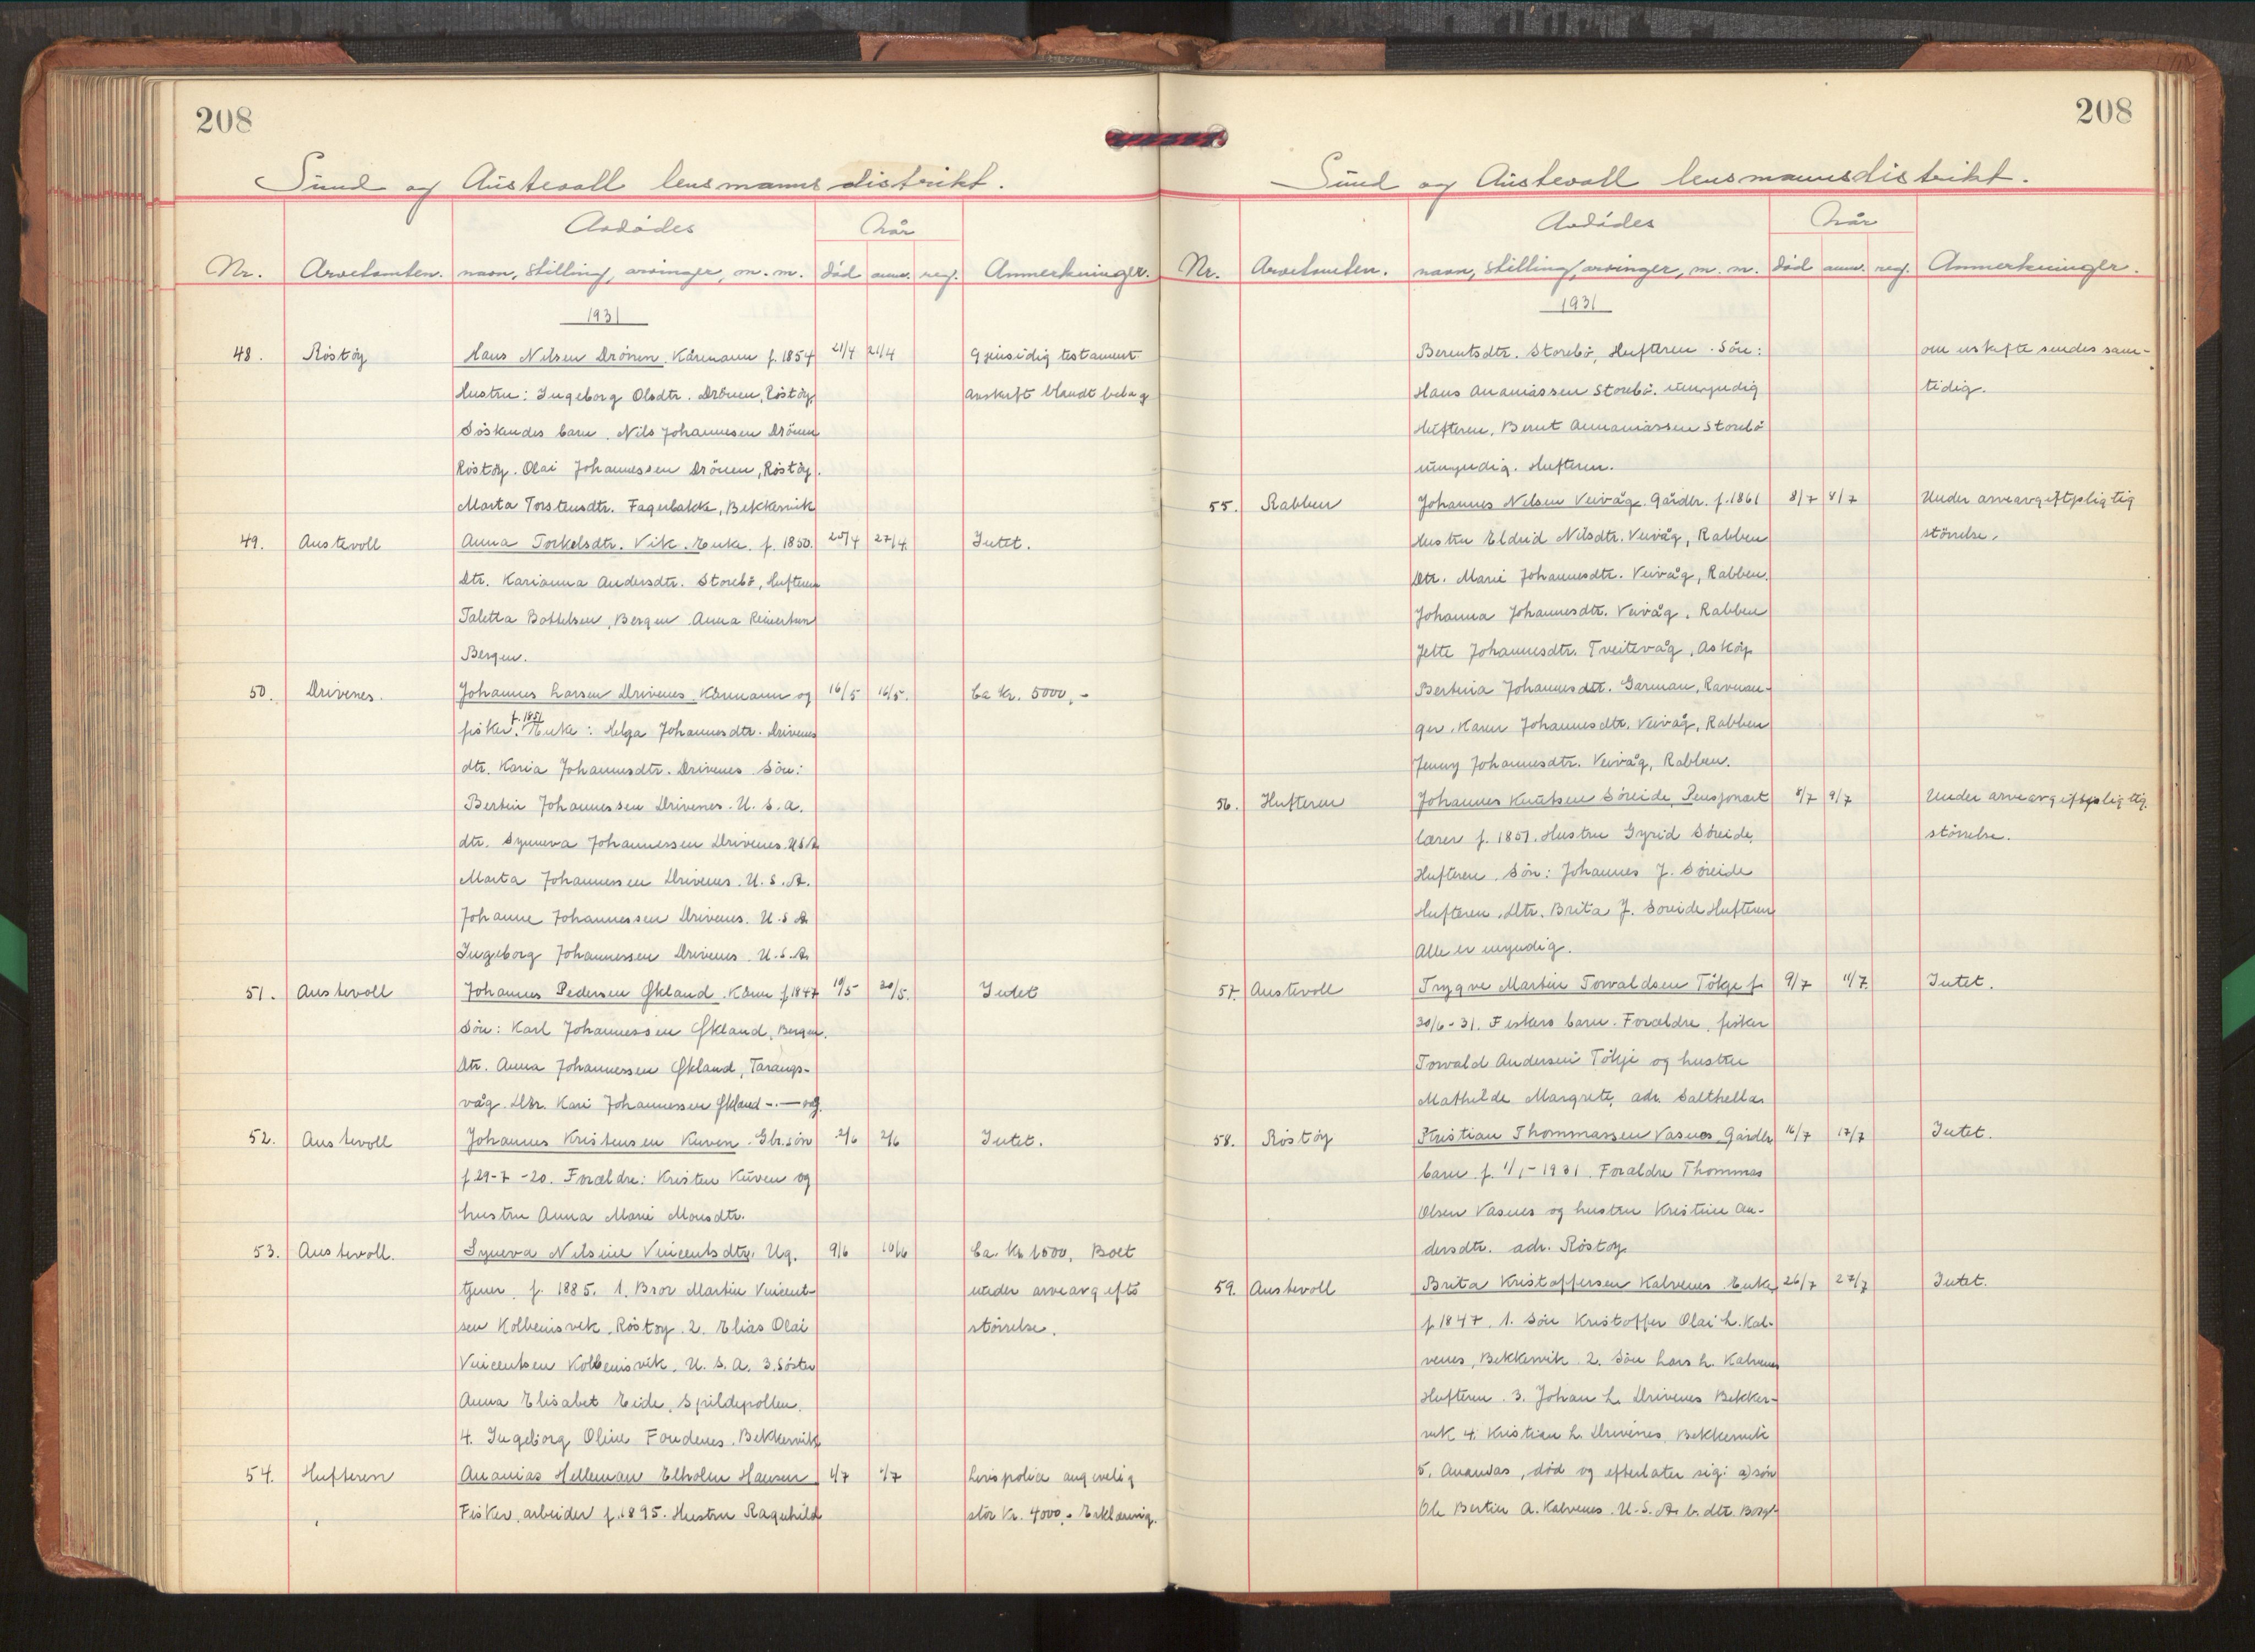 208
Sund og Austevoll lensmanns distrikt.
Avdødes
Når
Nr. Arvetomten. navn, stilling, arvinger, m. m. død anm. reg. Anmerkninger.
1931
48. Röstöy Hans Nilsen Drönen. Kårmann f. 1854 21/4 21/4 Gjensidig testament.
Hustru: Ingeborg Olsdtr. Drönen, Röstöy avskrift blandt bebag
Söskendes barn. Nils Johannesen Drönen
Röstöy. Olai Johannessen Drönen, Röstöy.
Marta Torstensdtr. Fagerbakk, Bekkervik
49. Austevoll Anna Torkelsdtr. Vik. Enke. f. 1850. 25/4 27/4. Intet.
Dtr. Karianna Andersdtr. Storebö, Hufteren
Taletta Bottelsen, Bergen Anna Reinertsen
Bergen.
50. Drivenes. Johannes Larsen Drivenes Kårmann og 16/5 16/5. Ca kr. 5000,-
fisker. f. 1851 Enke: Helga Johannesdtr. Drivenes
dtr. Karia Johannesdtr. Drivenes Sön:
Bertin Johannessen Drivenes. U. S. A.
dtr. Synneva Johannessen Drivenes. USA
Marta Johannessen Drivenes. U. S. A.
Johanne Johannessen Drivenes. U. S A
Ingeborg Johannessen Drivenes. U. S. A.
51. Austevoll Johannes Pedersen Økland. Kårm f 1847 19/5 20/5. Intet
Sön: Karl Johannessen Økland, Bergen.
Dtr. Anna Johannessen Økland, Tarangs-
våg. Dtr. Kari Johannessen Økland -.— våg.
52. Austevoll Johannes Kristensen Kuven. Gbr.sön 2/6 2/6 Intet.
f 29-7-20. Forældre: Kristen Kuven og
hustru Anna Marie Monsdtr.
53. Austevoll. Syneva Nilsine Vincentsdtr. Ug. 9/6 10/6 Ca. Kr 1500, Boet
tjener. f. 1885. 1. Bror Martin Vincent- under arveavgifts
sen Kolbeinsvik. Röstöy. 2. Elias Olai störrelse.
Vincentsen Kolbeinsvik. U. S. A. 3. Söster
Anna Elisabet Eide, Spildepollen.
4. Ingeborg Oline Fondenes. Bekkervik
54. Hufteren Ananias Helleman Elholm Hansen 4/7 7/7 Livspolice angivelig
Fisker, arbeider f. 1895. Hustru Ragnhild stor Kr. 4000.- Erklæring.
208
Sund og Austevoll lensmannsdistrikt.
Avdødes
Når
Nr. Arvetomten. navn, stilling, arvinger, m. m. død anm. reg. Anmerkninger.
1931
Berentsdtr. Storebö, Hufteren. Sön: om uskifte sendes sam-
Hans Ananiassen Storebö. umyndig tidig.
Hufteren, Bernt Annaniassen Storebö
umyndig. Hufteren.
55. Rabben Johannes Nilsen Veivåg. Gårdbr. f. 1861 8/7 8/7 Under arveavgiftpligtig
Hustru Eldrid Nilsdtr. Veivåg, Rabben störrelse.
Dtr. Marie Johannesdtr. Veivåg, Rabben.
Johanna Johannesdtr. Veivåg. Rabben
Jette Johannesdtr. Tveitevåg, Asköy
Bertinia Johannesdtr. Garman, Ravnan-
ger. Karen Johannesdtr. Veivåg, Rabben
Jenny Johannesdtr. Veivåg, Rabben.
56. Hufteren Johannes Knutsen Söreide, Pensjonert 8/7 9/7 Under arveavgiftpligtig
lærer f. 1851. Hustru Gyrid Söreide, störrelse.
Hufteren. Sön: Johannes J. Söreide
Hufteren. Dtr. Brita J. Soreide Hufteren
Alle er myndig.
57. Austevoll Trygve Martin Torvaldsen Tökje f. 9/7 11/7. Intet.
30/6-31. Fiskers barn. Forældre, fisker
Torvald Andersen Tökje og hustru
Mathilde Margrete, adr. Salthella
58. Röstöy Kristian Thommassen Vasnes Gårdbr 16/7 17/7 Intet.
barn f. 1/1-1931. Forældre Thommas
Olsen Vasnes og hustru Kristine An-
dersdtr. adr. Röstöy.
59. Austevoll Brita Kristoffersen Kalvenes Enke 26/7 27/7 Intet.
f. 1847. 1. Sön Kristoffer Olai L. Kal-
venes, Bekkervik. 2. Sön Lars L. Kalvenes
Hufteren. 3. Johan L. Drivenes Bekker-
vik 4. Kristian L. Drivenes, Bekkervik
5. Anandas, död og efterlater sig: a) sön
Ole Bertin A. Kalvenes. U. S. A. b. dtr. Borg-